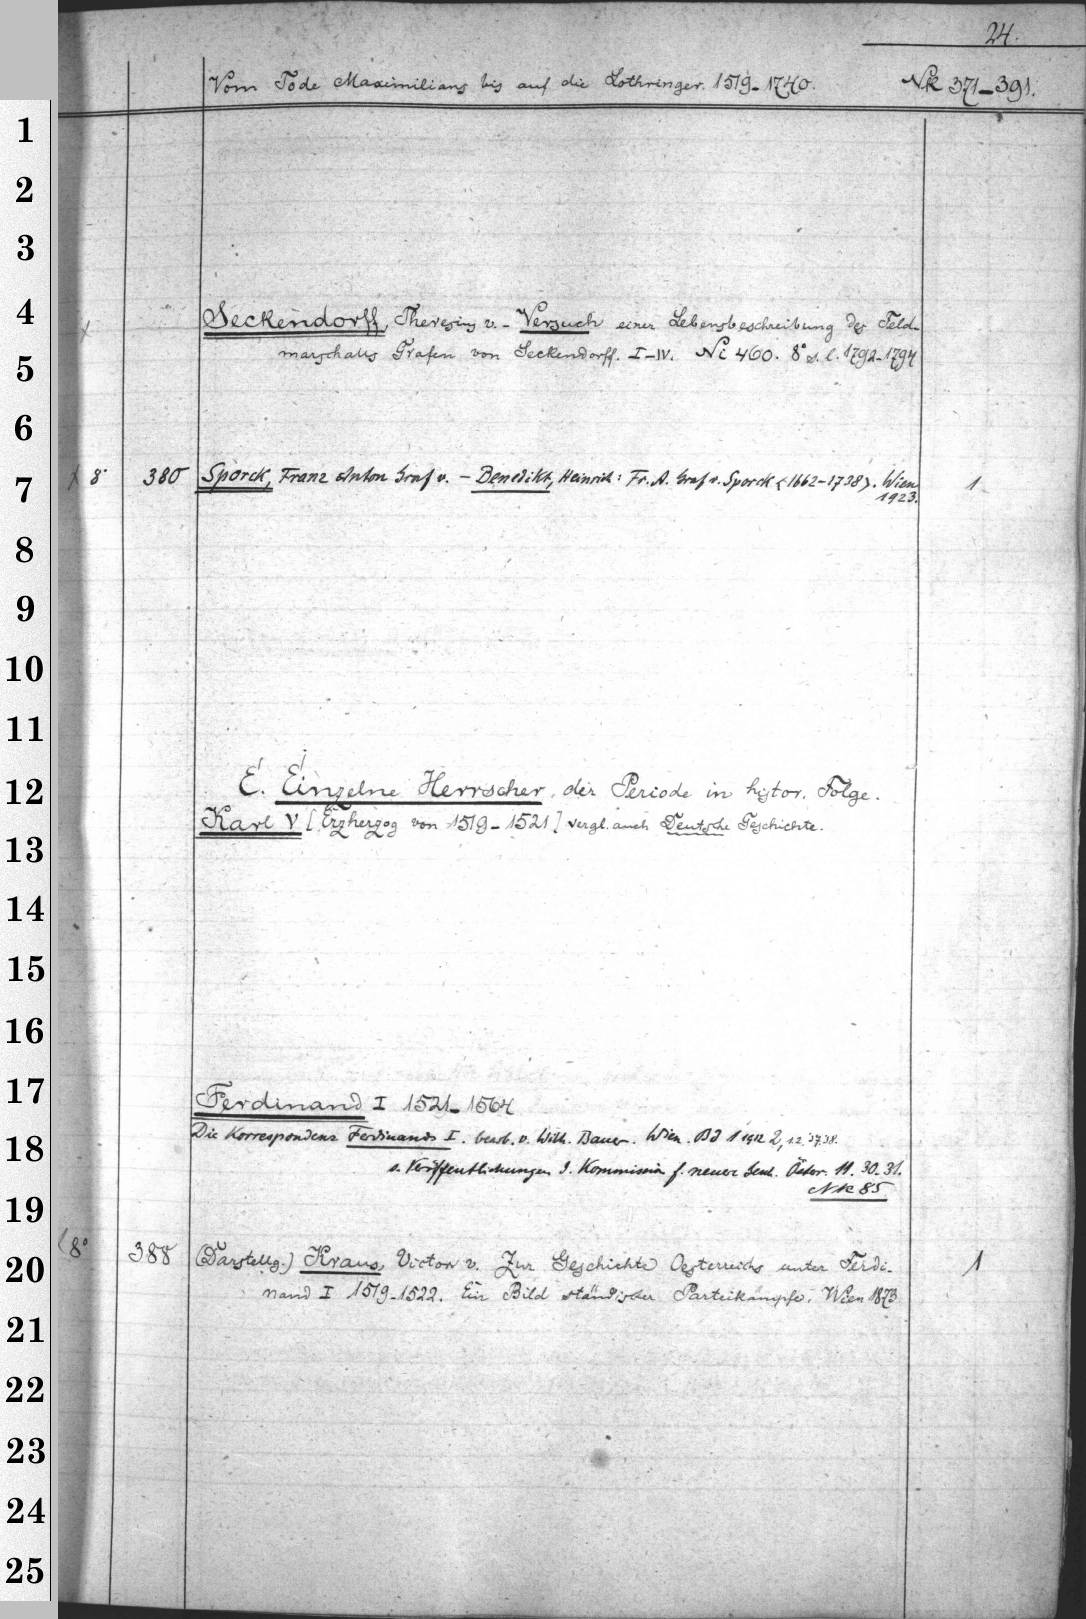 24.
Vom Tode Maximilians bis auf die Lothringer. 1519-1740. Nk 371-391.
1
2
3
4
Seckendorff, Theresius v. - Versuch einer Lebensbeschreibung des Feld-
marschalls Grafen von Seckendorff. I-IV. Ni 460. 8° s. l. 1792-1794
5
6
7
x 8° 380 Sporck, Franz Anton Graf v. - Benedikt, Heinrich: Fr. A. Graf v. Sporck <1662-1738>. Wien 1
1923.
8
9
10
11
12
E. Einzelne Herrscher der Periode in histor. Folge.
Karl V [Erzherzog von 1519-1521] vergl. auch Deutsche Geschichte.
13
14
15
16
17
Ferdinand I 1521-1564
18
Die Korrespondenz Ferdinands I. bearb. v. Wilh. Bauer. Wien. Bd 1 1912 2, 1.2. 37.38.
s. Veröffentlichungen d. Kommission f. neuere Gesch. Österr. 11. 30. 31.
Nk 85
19
20
8° 388 (Darstellg.) Kraus, Victor v. Zur Geschichte Oesterreichs unter Ferdi- 1
nand I 1519-1522. Ein Bild ständischer Parteikämpfe. Wien 1873
21
22
23
24
25